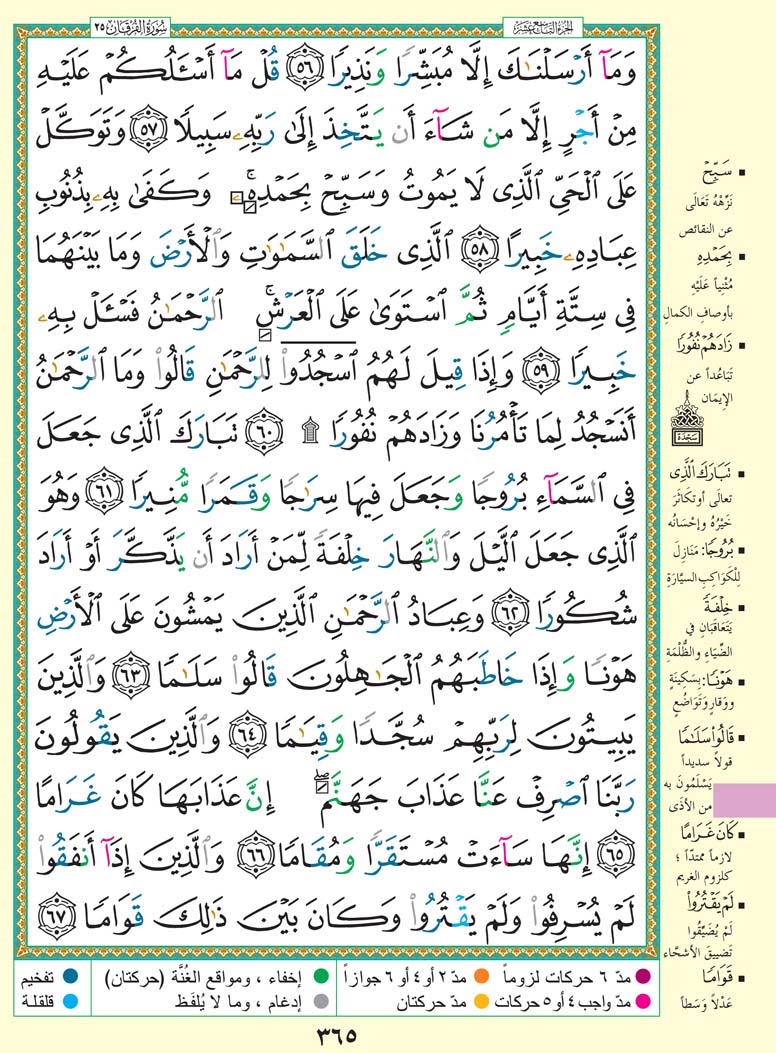 سُورَةُ الفُرقَان ٢٥
الجزء التاسع عشر
وَمَآ أَرْسَلْنَٰكَ إِلَّا مُبَشِّرًا وَنَذِيرًا ٥٦ قُلْ مَآ أَسْـَٔلُكُمْ عَلَيْهِ
مِنْ أَجْرٍ إِلَّا مَن شَآءَ أَن يَتَّخِذَ إِلَىٰ رَبِّهِۦ سَبِيلًا ٥٧ وَتَوَكَّلْ
عَلَى ٱلْحَيِّ ٱلَّذِى لَا يَمُوتُ وَسَبِّحْ بِحَمْدِهِۦۚ وَكَفَىٰ بِهِۦ بِذُنُوبِ
عِبَادِهِۦ خَبِيرًا ٥٨ ٱلَّذِى خَلَقَ ٱلسَّمَٰوَٰتِ وَٱلْأَرْضَ وَمَا بَيْنَهُمَا
فِى سِتَّةِ أَيَّامٍ ثُمَّ ٱسْتَوَىٰ عَلَى ٱلْعَرْشِۚ ٱلرَّحْمَٰنُ فَسْـَٔلْ بِهِۦ
خَبِيرًا ٥٩ وَإِذَا قِيلَ لَهُمُ ٱسْجُدُوا۟ لِلرَّحْمَٰنِ قَالُوا۟ وَمَا ٱلرَّحْمَٰنُ
أَنَسْجُدُ لِمَا تَأْمُرُنَا وَزَادَهُمْ نُفُورًا ۩ ٦٠ تَبَارَكَ ٱلَّذِى جَعَلَ
فِى ٱلسَّمَآءِ بُرُوجًا وَجَعَلَ فِيهَا سِرَٰجًا وَقَمَرًا مُّنِيرًا ٦١ وَهُوَ
ٱلَّذِى جَعَلَ ٱلَّيْلَ وَٱلنَّهَارَ خِلْفَةً لِّمَنْ أَرَادَ أَن يَذَّكَّرَ أَوْ أَرَادَ
شُكُورًا ٦٢ وَعِبَادُ ٱلرَّحْمَٰنِ ٱلَّذِينَ يَمْشُونَ عَلَى ٱلْأَرْضِ
هَوْنًا وَإِذَا خَاطَبَهُمُ ٱلْجَٰهِلُونَ قَالُوا۟ سَلَٰمًا ٦٣ وَٱلَّذِينَ
يَبِيتُونَ لِرَبِّهِمْ سُجَّدًا وَقِيَٰمًا ٦٤ وَٱلَّذِينَ يَقُولُونَ
رَبَّنَا ٱصْرِفْ عَنَّا عَذَابَ جَهَنَّمَۖ إِنَّ عَذَابَهَا كَانَ غَرَامًا
٦٥ إِنَّهَا سَآءَتْ مُسْتَقَرًّا وَمُقَامًا ٦٦ وَٱلَّذِينَ إِذَآ أَنفَقُوا۟
لَمْ يُسْرِفُوا۟ وَلَمْ يَقْتُرُوا۟ وَكَانَ بَيْنَ ذَٰلِكَ قَوَامًا ٦٧
▪ سَبِّحْ
نَزِّهْهُ تَعَالَى
عن النقائص
▪ بِحَمْدِهِ
مُثْنِياً عَلَيْهِ
بأوصافِ الكمالِ
▪ زَادَهُمْ نُفُورًا
تَبَاعُداً عن
الإِيمَان
سَجْدَة
▪ تَبَارَكَ الَّذِى
تعالى أو تكاثَرَ
خَيْرُهُ وإحْسَانُه
▪ بُرُوجًا: مَنَازِلَ
لِلْكَواكِبِ السيّارَةِ
▪ خِلْفَةً
يَتَعَاقَبَانِ في
الضِّيَاءِ والظُّلْمَةِ
▪ هَوْنًا: بِسَكِينَةٍ
ووَقارٍ وتَوَاضُعٍ
▪ قَالُوا۟ سَلَٰمًا
قولاً سديداً
يَسْلَمُونَ به
من الأذى
▪ كَانَ غَرَامًا
لازماً ممتدّاً ؛
كلزوم الغريم
▪ لَمْ يَقْتُرُوا۟
لَمْ يُضَيِّقُوا
تَضيِيقَ الأشحَّاء
▪ قَوَامًا
عَدْلاً وَسَطاً
مدّ ٦ حركات لزوماً مدّ ٢ أو ٤ أو ٦ جوازاً إخفاء ، ومواقع الغُنَّة (حركتان) تفخيم
مدّ واجب ٤ أو ٥ حركات مدّ حركتان إدغام ، وما لا يُلفَظ قلقلة
٣٦٥